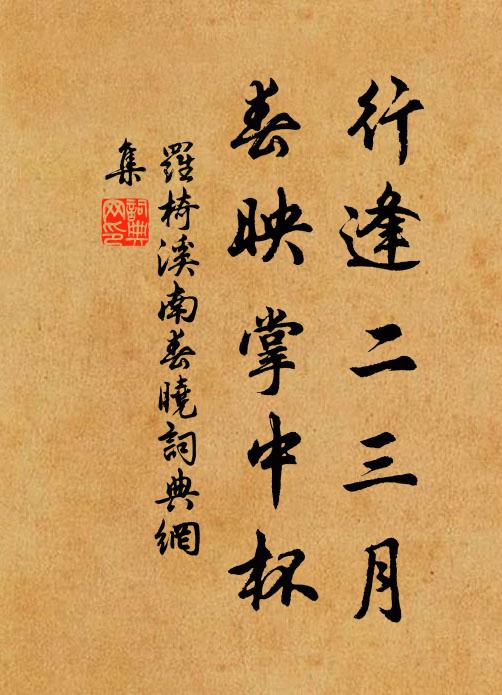 行逢二三月
春映掌中杯
羅椅溪南春曉詞典網
集
詞典
网印